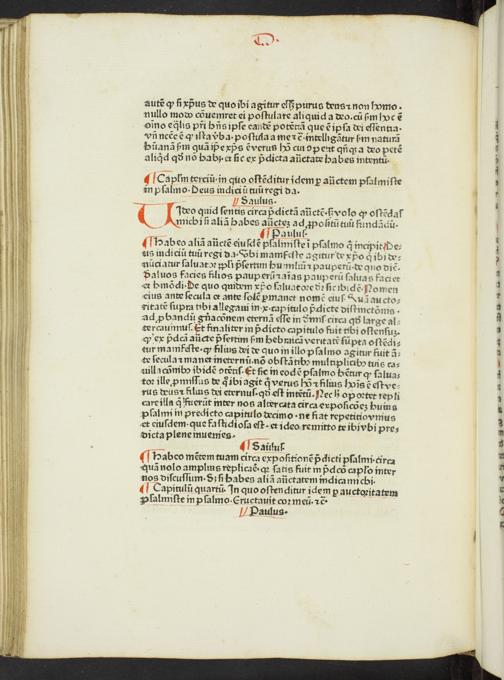 autē ꝙ si xp̄us de quo ibi agitur esset purus deus ⁊ non homo.
nullo modo cōueniret ei postulare aliquid a deo. cū sm̄ hoc ē
oīno eq̄lis pr̄i hn̄s ipse eandē potētiā que ē ipsa dei essentia.
vn̄ nccē ē ꝙ ista v̄ba. postula a me ⁊ c̄. intelligātur sm̄ naturā
hūanā sm̄ quā ip̄e xp̄s ē verus hō cui
aliqd qd nō habꝫ. et sic ex p̄dicta auc̄tate habes intentū.
¶ Caplm̄ terciū. in quo ostēditur idem ꝑ auc̄tem psalmiste
in psalmo. Deus iudiciū tuū regi da.
// Saulus.
Video quid sentis circa p̄dictā auc̄tē. sꝫ volo ꝙ ostēdas
michi si aliā habes auc̄tez ad ꝓpositū tuū fundādū.
¶ Paulus.
¶ Habeo aliā auc̄tē eiusdē psalmiste ī psalmo q̄ incipit. De
us iudiciū tuū regi da. vbi manifeste agitur de xp̄o q̄ ibi de
nūciatur saluator ppl̄i p̄sertim humiliū ⁊ pauperū. de quo dic̄.
saluos faciet filios pauperū. aīas pauperū saluas faciet
et hmōdi. De quo quidem xp̄o saluatore dr̄ sic ibidē. Nomen
eius ante secula et ante solē ꝑmanet nomē eius. Quā aucto-
ritatē supra tibi allegaui in .x. capitulo p̄dicte distinctōnis.
ad ꝓbandū gn̄acōnem eternā esse in diuīs. circa qd large al-
tercauimus. Et finaliter in p̄dicto capitulo fuit tibi ostensuꝫ.
ꝙ ex p̄dcā auc̄te p̄sertim sm̄ hebraicā veritatē sup̄ta ostēdi-
tur manifeste. ꝙ filius dei de quo in illo psalmo agitur fuit ā-
te secula ⁊ manet ineternū. nō obstātibꝰ multiplicibꝰ tuis ca-
uillacōnibꝰ ibidē ōtentis. Et sic in eodē psalmo hētur ꝙ salua-
tor ille ꝓmissus de q̄ ibi agit̄ q̄ verus hō ⁊ filius hoīs ē est ve-
rus deus ⁊ filius dei eternus. qd est intētū. Nec hꝫ oportet repli
care illa q̄ fuerūt inter nos altercata circa expositōeꝫ huius
psalmi in predicto capitulo decimo. ne fiat repetitio vnius
et eiusdem. que fastidiosa est. et ideo remitto te ibi vbi pre-
dicta plene inuenies.
¶ Saulus.
¶ Habeo mētem tuam circa expositionē p̄dicti psalmi. circa
quā nolo amplius replicare. qꝛ satis fuit in p̄dcō caplo inter
nos discussum. Sꝫ si habes aliā auctatem indica michi.
¶ Capitulū quartū. In quo ostenditur idem ꝑ auctoritatem
psalmiste in psalmo. Eructauit cor meū. ⁊ c̄.
// Paulus.